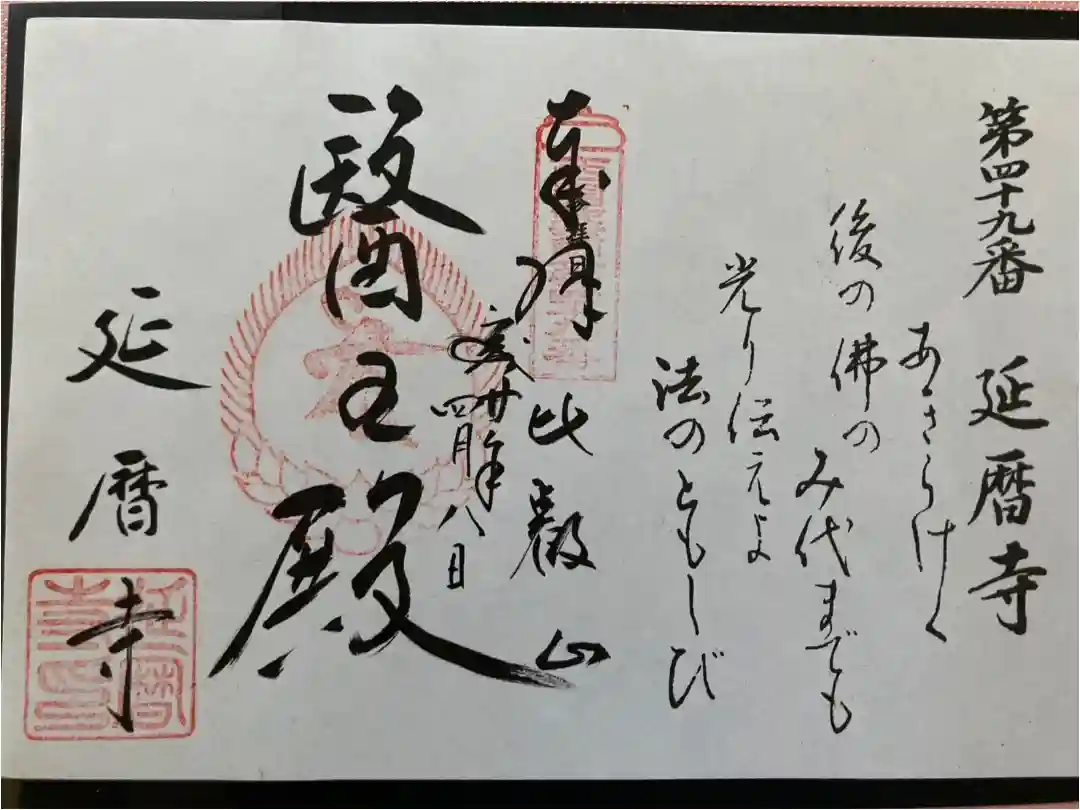 第四十九番 延暦寺
あきらけく
後の佛の
み代までも
光り伝えよ
法のともしび
奉拝 比叡山
廿年
四月八日
醫王殿
延暦寺